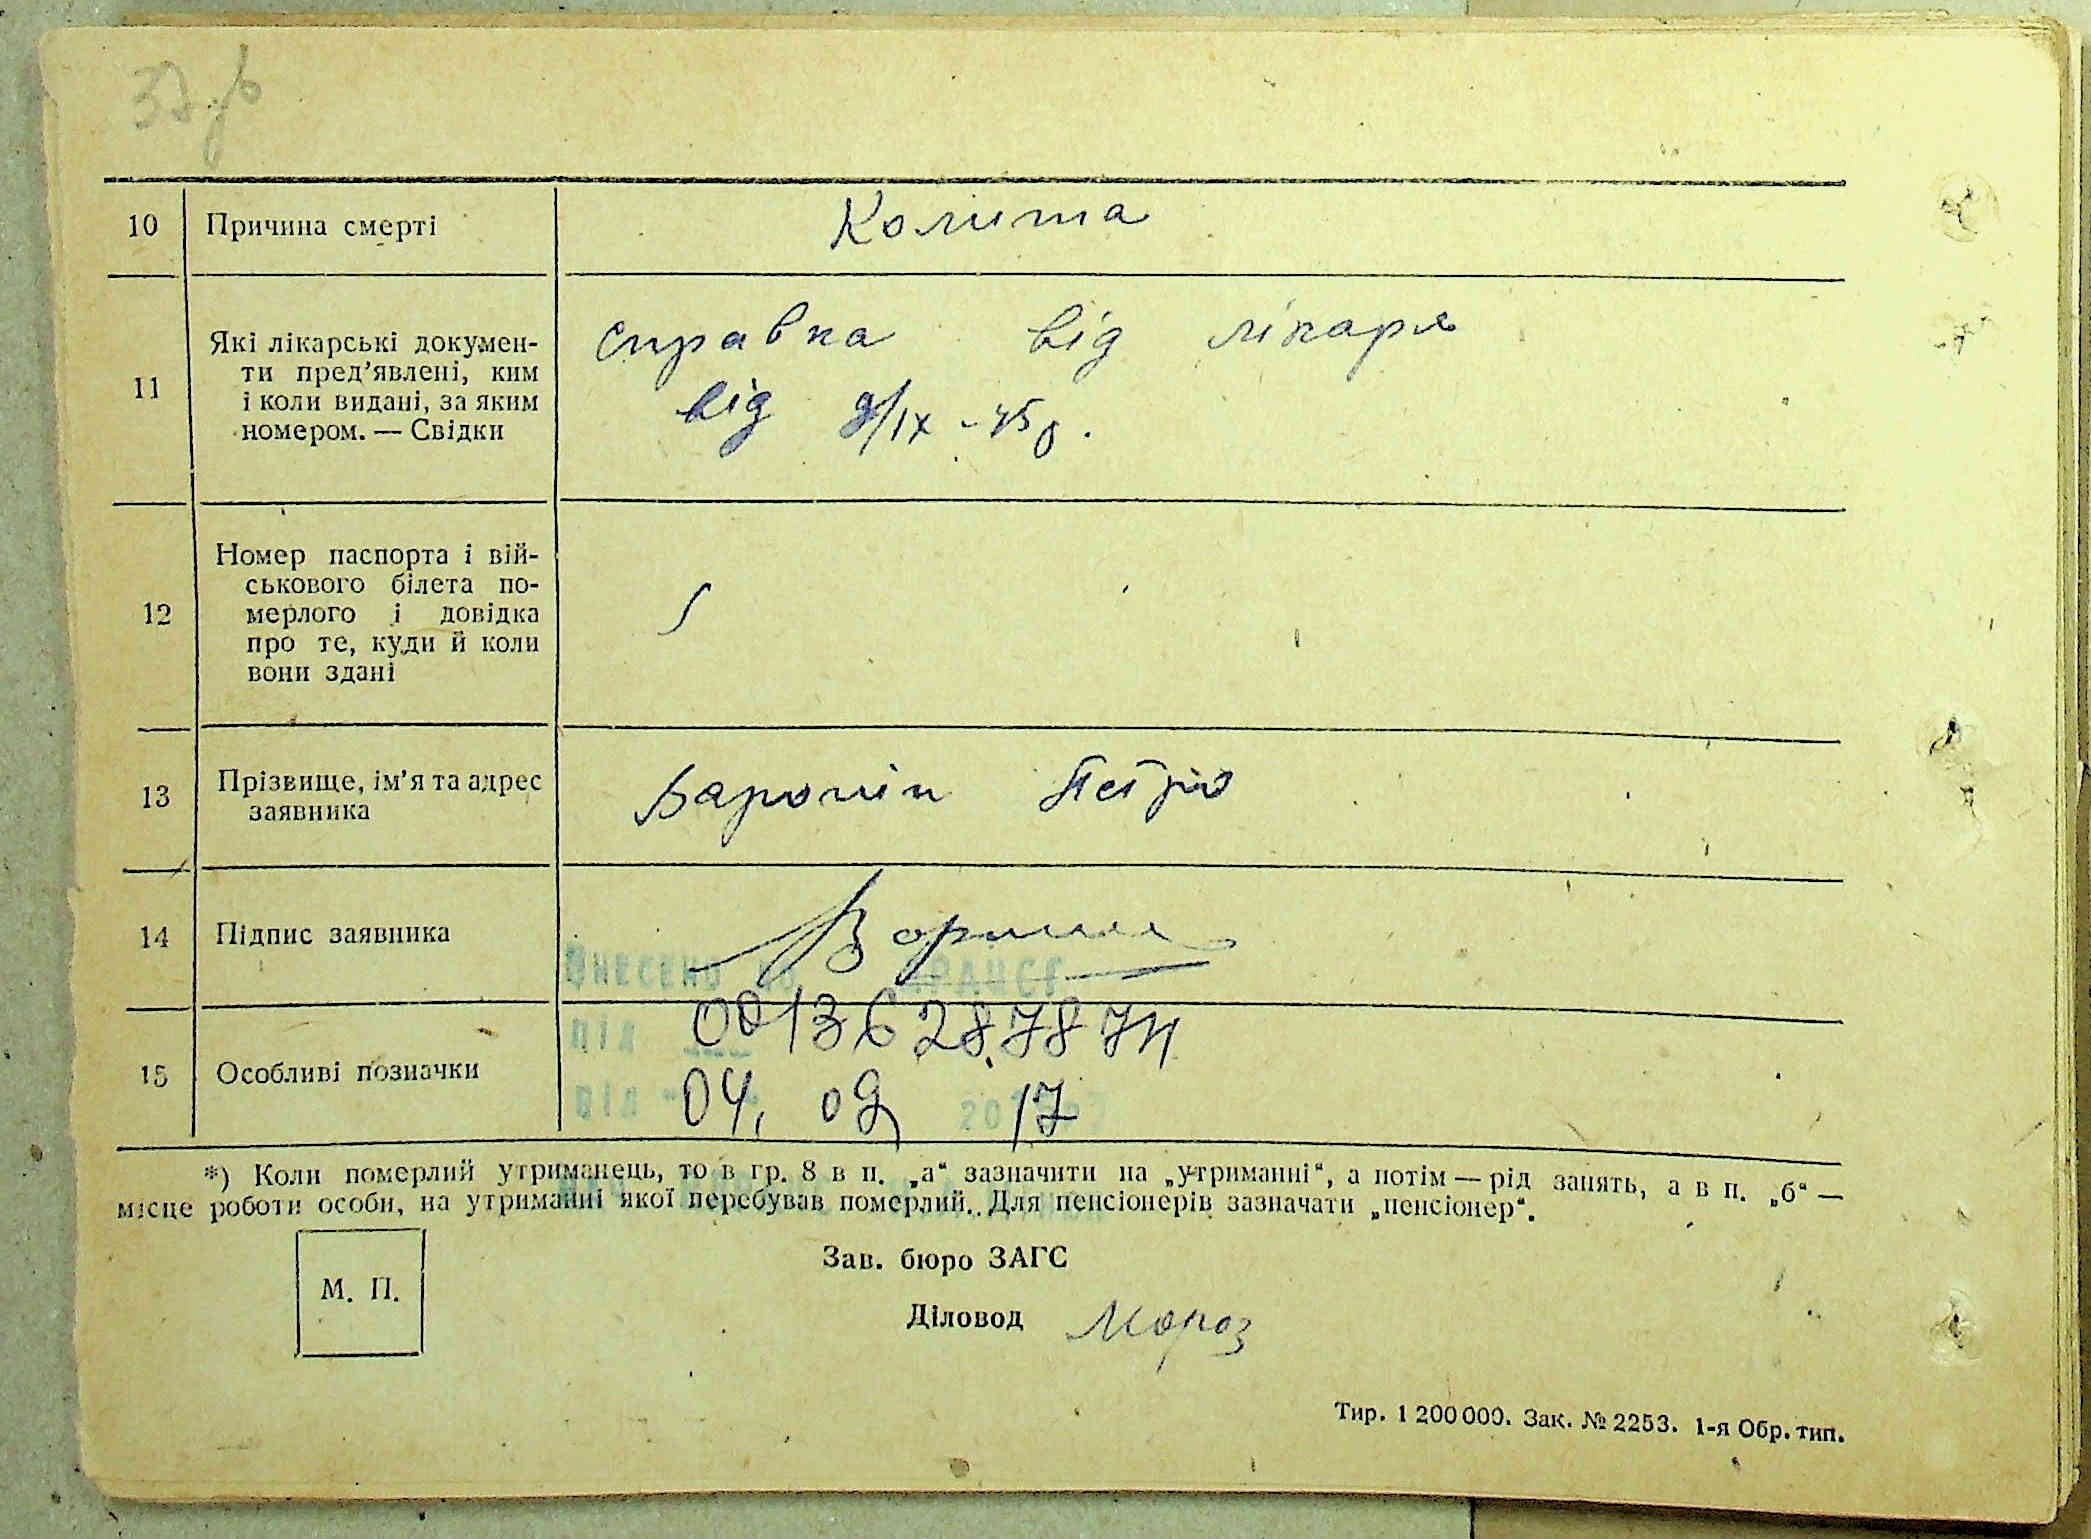 37
10 Причина смерті Колита
11 Які лікарські докумен-
ти пред'явлені, ким
і коли видані, за яким
номером. — Свідки
справка від лікаря
від 9/IX - 45 р.
12 Номер паспорта і вій-
ськового білета по-
мерлого і довідка
про те, куди й коли
вони здані
13 Прізвище, ім'я та адрес
заявника
Петро
14 Підпис заявника
ВНЕСЕНО ДО ДРАЦСГ
15 Особливі позначки
від 00136287874
від 04. 09 2017
*) Коли померлий утриманець, то в гр. 8 в п. „а“ зазначити на „утриманні“, а потім — рід занять, а в п. „б“ —
місце роботи особи, на утриманні якої перебував померлий. Для пенсіонерів зазначати „пенсіонер“.
М. П.
Зав. бюро ЗАГС
Діловод Мороз
Тир. 1 200 000. Зак. № 2253. 1-я Обр. тип.